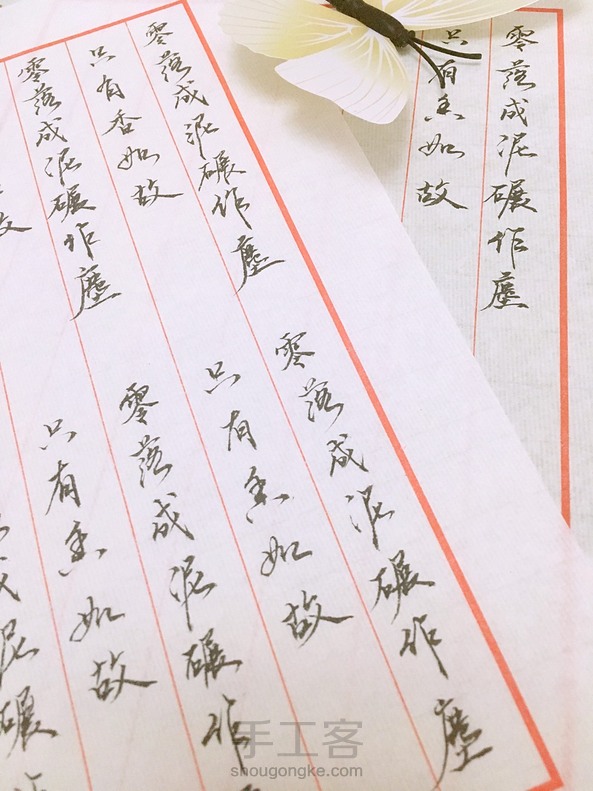 零落成泥碾作塵
只有香如故
零落成泥碾作塵
只有香如故
零落成泥碾作塵
故
零落成泥碾作塵
只有香如故
零落成泥碾作
只有香如故
成泥碾
手工客
shougongke.com